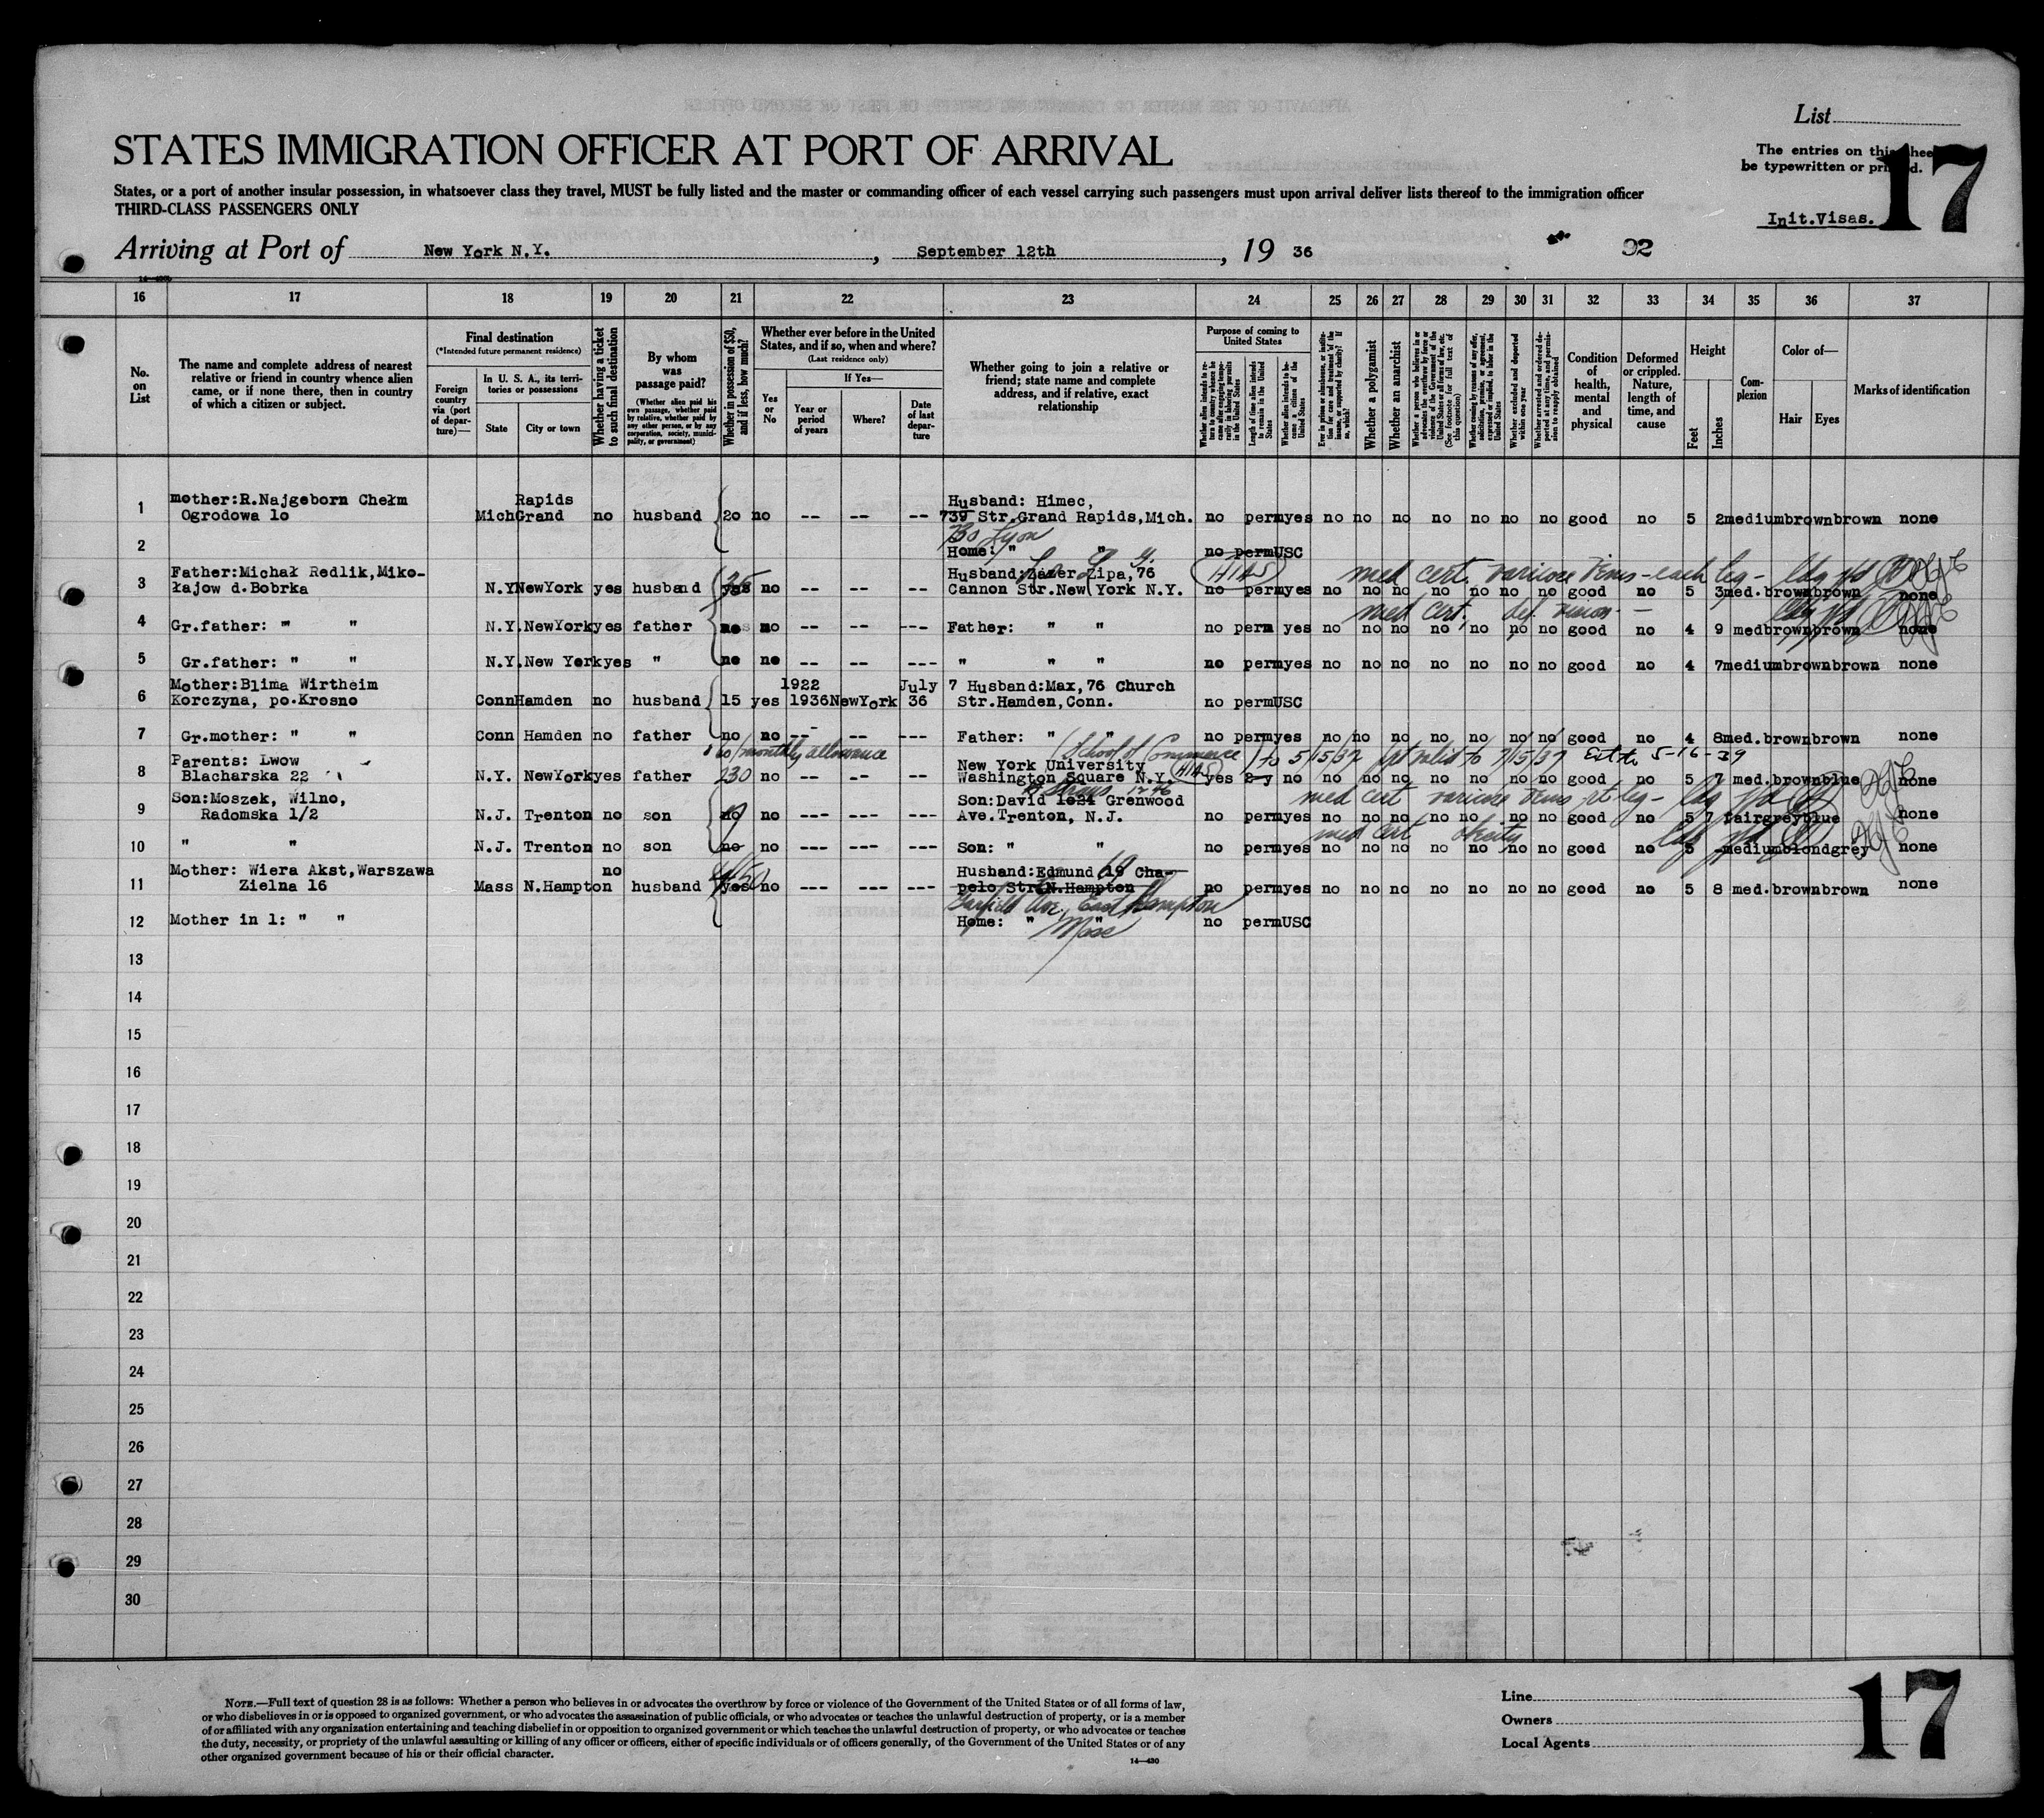 List
STATES IMMIGRATION OFFICER AT PORT OF ARRIVAL
The entries on this shee
be typewritten or printed.
17
States, or a port of another insular possession, in whatsoever class they travel, MUST be fully listed and the master or commanding officer of each vessel carrying such passengers must upon arrival deliver lists thereof to the immigration officer
THIRD-CLASS PASSENGERS ONLY
Init.Visas.
Arriving at Port of New York N.Y. , September 12th , 19 36
92
16 17 18 19 20 21 22 23 24 25 26 27 28 29 30 31 32 33 34 35 36 37
No. on List
The name and complete address of nearest relative or friend in country whence alien came, or if none there, then in country of which a citizen or subject.
Final destination
(*Intended future permanent residence)
Foreign country via (port of departure)—
In U. S. A., its territories or possessions
State
City or town
Whether having a ticket to such final destination
By whom was passage paid?
(Whether alien paid his own passage, whether paid by relative, whether paid by any other person, or by any corporation, society, municipality, or government)
Whether in possession of $50, and if less, how much?
Whether ever before in the United States, and if so, when and where?
(Last residence only)
Yes or No
If Yes—
Year or period of years
Where?
Date of last departure
Whether going to join a relative or friend; state name and complete address, and if relative, exact relationship
Purpose of coming to United States
Whether alien intends to return to country whence he came after engaging temporarily in laboring pursuits in the United States
Length of time alien intends to remain in the United States
Whether alien intends to become a citizen of the United States
Ever in prison or almshouse, or institution for care and treatment of the insane, or supported by charity? If so, which?
Whether a polygamist
Whether an anarchist
Whether a person who believes in or advocates the overthrow by force or violence of the Government of the United States or all forms of law, etc. (See footnote for full text of this question)
Whether coming by reason of any offer, solicitation, promise, or agreement, expressed or implied, to labor in the United States
Whether excluded and deported within one year
Whether arrested and ordered deported at any time, and permission to reapply obtained
Condition of health, mental and physical
Deformed or crippled. Nature, length of time, and cause
Height
Feet
Inches
Complexion
Color of—
Hair
Eyes
Marks of identification
mother:R.Najgeborn Chełm Rapids Husband: Himec,
1 Ogrodowa 1o Mich Grand no husband 2o no -- -- -- 739 Str.Grand Rapids,Mich. no perm yes no no no no no no no good no 5 2 medium brown brown none
730 Lyon
2 Home: " " no perm USC
Father:Michał Redlik,Miko- Husband:Lazer Lipa,76 HIAS med cert. varicose veins - each leg -
3 łajow d.Bobrka N.Y. NewYork yes husband yes 35 no -- -- -- Cannon Str.New York N.Y. no perm yes no no no no no no no good no 5 3 med. brown brown none
med cert. def. vision -
4 Gr.father: " " N.Y. NewYork yes father no no -- -- --- Father: " " no perm yes no no no no no no no good no 4 9 med brown brown none
5 Gr.father: " " N.Y. New York yes " no no -- -- --- " " " no perm yes no no no no no no no good no 4 7 medium brown brown none
Mother:Blima Wirtheim 1922 July 7 Husband:Max,76 Church
6 Korczyna, po.Krosno Conn Hamden no husband 15 yes 1936 NewYork 36 Str.Hamden,Conn. no perm USC
7 Gr.mother: " " Conn Hamden no father no no -- -- --- Father: " " no perm yes no no no no no no no good no 4 8 med. brown brown none
Parents: Lwow monthly allowance (School of Commerce) to 5/15/37 valid to 7/15/37 Ext to 5-16-39
New York University
8 Blacharska 22 N.Y. NewYork yes father 230 no -- -- -- Washington Square N.Y. HIAS yes 2-y no no no no no no no no good no 5 7 med. brown blue none
Son:Moszek, Wilno, Son:David 1024 Grenwood 1276 med cert varicose veins rt leg -
9 Radomska 1/2 N.J. Trenton no son no no --- --- --- Ave.Trenton, N.J. no perm yes no no no no no no no good no 5 7 fair grey blue none
med cert obesity
10 " " N.J. Trenton no son no no --- --- --- Son: " " no perm yes no no no no no no no good no 5 - medium blond grey none
Mother: Wiera Akst,Warszawa no Husband:Edmund 19 Cha- 69
11 Zielna 16 Mass N.Hampton husband yes no --- --- --- pelo Str.N.Hampton no perm yes no no no no no no no good no 5 8 med. brown brown none
Garfield Ave, East Hampton
12 Mother in l: " " Home: " " no perm USC
Mass
13
14
15
16
17
18
19
20
21
22
23
24
25
26
27
28
29
30
NOTE.—Full text of question 28 is as follows: Whether a person who believes in or advocates the overthrow by force or violence of the Government of the United States or of all forms of law,
or who disbelieves in or is opposed to organized government, or who advocates the assassination of public officials, or who advocates or teaches the unlawful destruction of property, or is a member
of or affiliated with any organization entertaining and teaching disbelief in or opposition to organized government or which teaches the unlawful destruction of property, or who advocates or teaches
the duty, necessity, or propriety of the unlawful assaulting or killing of any officer or officers, either of specific individuals or of officers generally, of the Government of the United States or of any
other organized government because of his or their official character.
14—430
Line
Owners
Local Agents
17